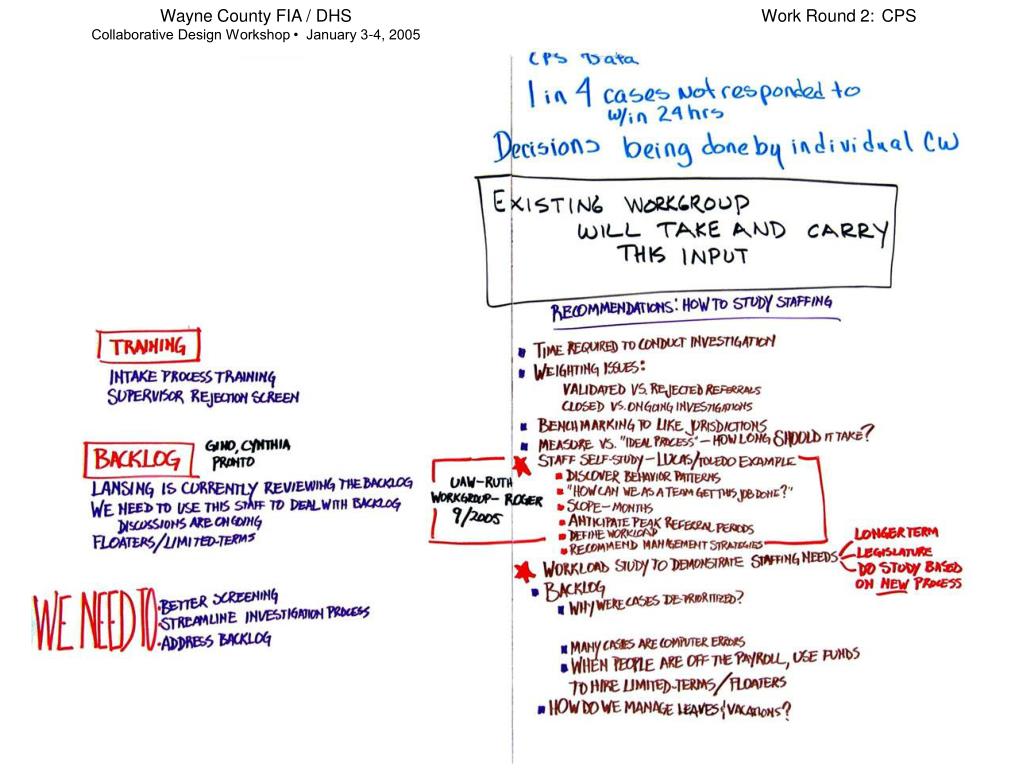 Wayne County FIA / DHS
Collaborative Design Workshop • January 3-4, 2005
Work Round 2: CPS
CPS Data
1 in 4 cases not responded to
w/in 24 hrs
Decisions being done by individual CW
EXISTING WORKGROUP
WILL TAKE AND CARRY
THIS INPUT
TRAINING
INTAKE PROCESS TRAINING
SUPERVISOR REJECTION SCREEN
BACKLOG
GINO, CYNTHIA
PRONTO
LANSING IS CURRENTLY REVIEWING THE BACKLOG
WE NEED TO USE THIS STAFF TO DEAL WITH BACKLOG
DISCUSSIONS ARE ONGOING
FLOATERS/LIMITED-TERMS
WE NEED TO
• BETTER SCREENING
• STREAMLINE INVESTIGATION PROCESS
• ADDRESS BACKLOG
RECOMMENDATIONS: HOW TO STUDY STAFFING
TIME REQUIRED TO CONDUCT INVESTIGATION
WEIGHTING ISSUES:
VALIDATED VS. REJECTED REFERRALS
CLOSED VS. ONGOING INVESTIGATIONS
BENCHMARKING TO LIKE JURISDICTIONS
MEASURE VS. "IDEAL PROCESS" – HOW LONG SHOULD IT TAKE?
STAFF SELF-STUDY – LUCAS/TOLEDO EXAMPLE
DISCOVER BEHAVIOR PATTERNS
"HOW CAN WE AS A TEAM GET THIS JOB DONE?"
SCOPE – MONTHS
ANTICIPATE PEAK REFERRAL PERIODS
DEFINE WORKLOAD
RECOMMEND MANAGEMENT STRATEGIES
UAW – RUTH
WORKGROUP – ROGER
9/2005
WORKLOAD STUDY TO DEMONSTRATE STAFFING NEEDS
LONGER TERM
LEGISLATURE
DO STUDY BASED
ON NEW PROCESS
BACKLOG
WHY WERE CASES DE-PRIORITIZED?
MANY CASES ARE COMPUTER ERRORS
WHEN PEOPLE ARE OFF THE PAYROLL, USE FUNDS
TO HIRE LIMITED-TERMS/FLOATERS
HOW DO WE MANAGE LEAVES & VACATIONS?